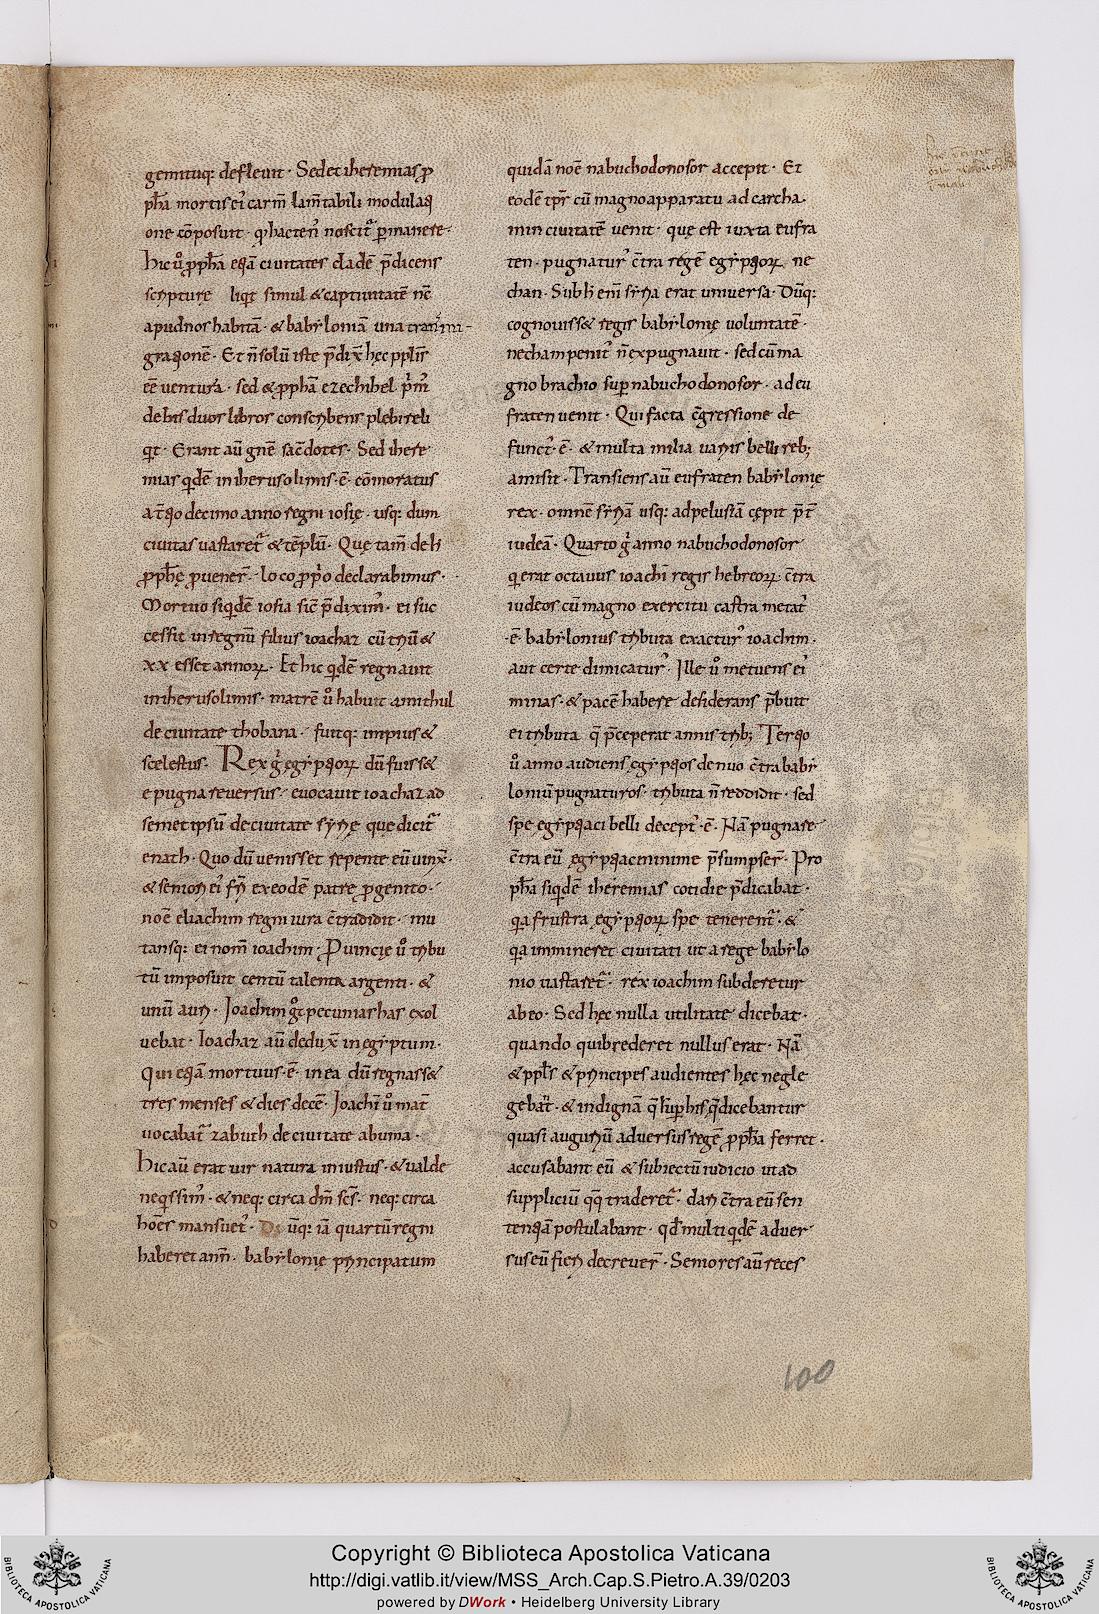 gemituq: defleuit · Sed et iheremias p
ph̄a mortis ei' carm̄ lam̄tabili modulati
one cōposuit · q hacten' noscit᷑ p̄manere ·
Hic u̾ ppha etiā ciuitates cladē p̄dicens
scripture liqt simul & captiuitatē nc̄
apud nos habitā · & babiloniā una
gratione · Et n̄ solū iste p̄dix̄ hec ppl̄is
eē ventura · sed & pphā ezechihel p̄m'
de his duos libros conscribens plebi reli
qt · Erant aū gn̄e sacdotes · Sed ihere
mias qdē in iherusolimis · ē · cōmoratus
a t̄tio decimo anno regni iosię · usq: dum
ciuitas uastaret᷑ & tēplū · Que tam̄ de h
pphę puener̄ · loco ppio declarabimus ·
Mortuo siqdē iosia sic̄ p̄dixim' · ei suc
cessit in regnū filius ioachaz cū triū &
xx esset annoꝝ · Et hic qdē regnauit
in iherusolimis · matrē u̾ habuit amithul
de ciuitate thobana · fuitq: impius &
scelestus · Rex g̾ egyptioꝝ dū fuiss&
e pugna reuersus · euocauit ioachaz ad
semet ipsū de ciuitate syrię que dicit᷑
emath · Quo dū uenisset repente eū uinx̄ ·
& seniori ei' fr̄i ex eodē patre pgenito ·
noē eliachim regni iura c̄tradidit · mu
tansq: ei nom̄ ioachim · Puincię u̾ tribu
tū imposuit centū talenta argenti · &
unū auri · Joachim g̾t pecunias has exol
uebat · Ioachaz aū dedux̄ in egyptum ·
Qui etiā mortuus · ē · in ea dū regnass&
tres menses & dies decē · Joachī u̾ mat̄
uocabat᷑ zabuth de ciuitate abuma ·
Hic aū erat uir natura iniustus · & ualde
neqissim' · & neq: circa dm̄ scs̄ · neq: circa
hoēs mansuet' · Ds ūq: iā quartū regni
haberet ann̄ · babilonię principatum
quidā noē nabuchodonosor accepit · Et
eodē tp̄r cū magno apparatu ad carcha
min ciuitatē uenit · quę est iuxta eufra
ten · pugnatur' c̄tra regē egyptioꝝ ne
chan · Sub h̄ em̄ syria erat uniuersa · Dūq:
cognouiss& regis babylonię uoluntatē ·
necham penit' n̄ expugnauit · sed cū ma
gno brachio sup nabuchodonosor · ad eu
fraten uenit · Qui facta c̄gressione de
funct' · ē · & multa milia uariis belli reb;
amisit · Transiens aū eufraten babylonię
rex · omnē syriā usq: ad pelusiā cepit p̄t̄
iudeā · Quarto g̾ anno nabuchodonosor
qi erat octauus ioachī regis hebreoꝝ c̄tra
iudeos cū magno exercitu castra metat'
· ē · babylonius tributa exactur' ioachim ·
aut certe dimicatur' · Ille u̾ metuens ei'
minas · & pacē habere desiderans p̄buit
ei tributa q̄ p̄ceperat annis trib; Tertio
u̾ anno audiens egyptios denuo c̄tra baby
loniū pugnaturos · tributa n̄ reddidit · sed
spe egyptiaci belli decept' · ē · Nā pugnare
c̄tra eū egyptiac minime p̄sumpser̄ · Pro
ph̄a siqdē iheremias cotidie p̄dicabat ·
qa frustra egyptioꝝ spe tenerent᷑ · &
qa immineret ciuitati ut a rege babylo
nio uastaret᷑ · rex ioachim subderetur
ab eo · Sed hęc nulla utilitate dicebat ·
quando qui brederet nullus erat · Nā
& ppl̄s & principes audientes hęc negle
gebat̄ · & indignā
quasi auguriū aduersus regē pphā ferret ·
accusabant eū & subiectū iudicio ut ad
suppliciū qq traderet᷑ · dari c̄tra eū sen
tentiā postulabant · qd̄ multi qdē aduer
sus eū fieri decreuer̄ · Seniores aū reces
100
Copyright © Biblioteca Apostolica Vaticana
http://digi.vatlib.it/view/MSS_Arch.Cap.S.Pietro.A.39/0203
powered by DWork • Heidelberg University Library
BIBLIOTECA APOSTOLICA VATICANA
BIBLIOTECA APOSTOLICA VATICANA